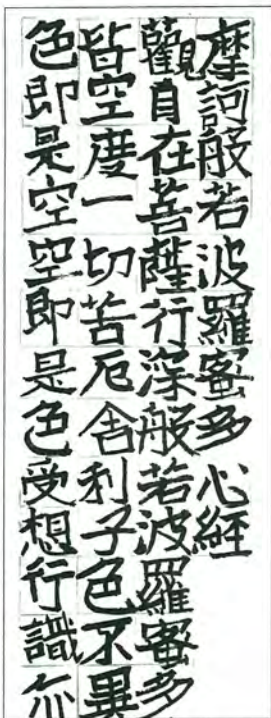 摩訶般若波羅蜜多心経
觀自在菩薩行深般若波羅蜜多
皆空度一切苦厄舎利子色不異
色即是空空即是色受想行識亦